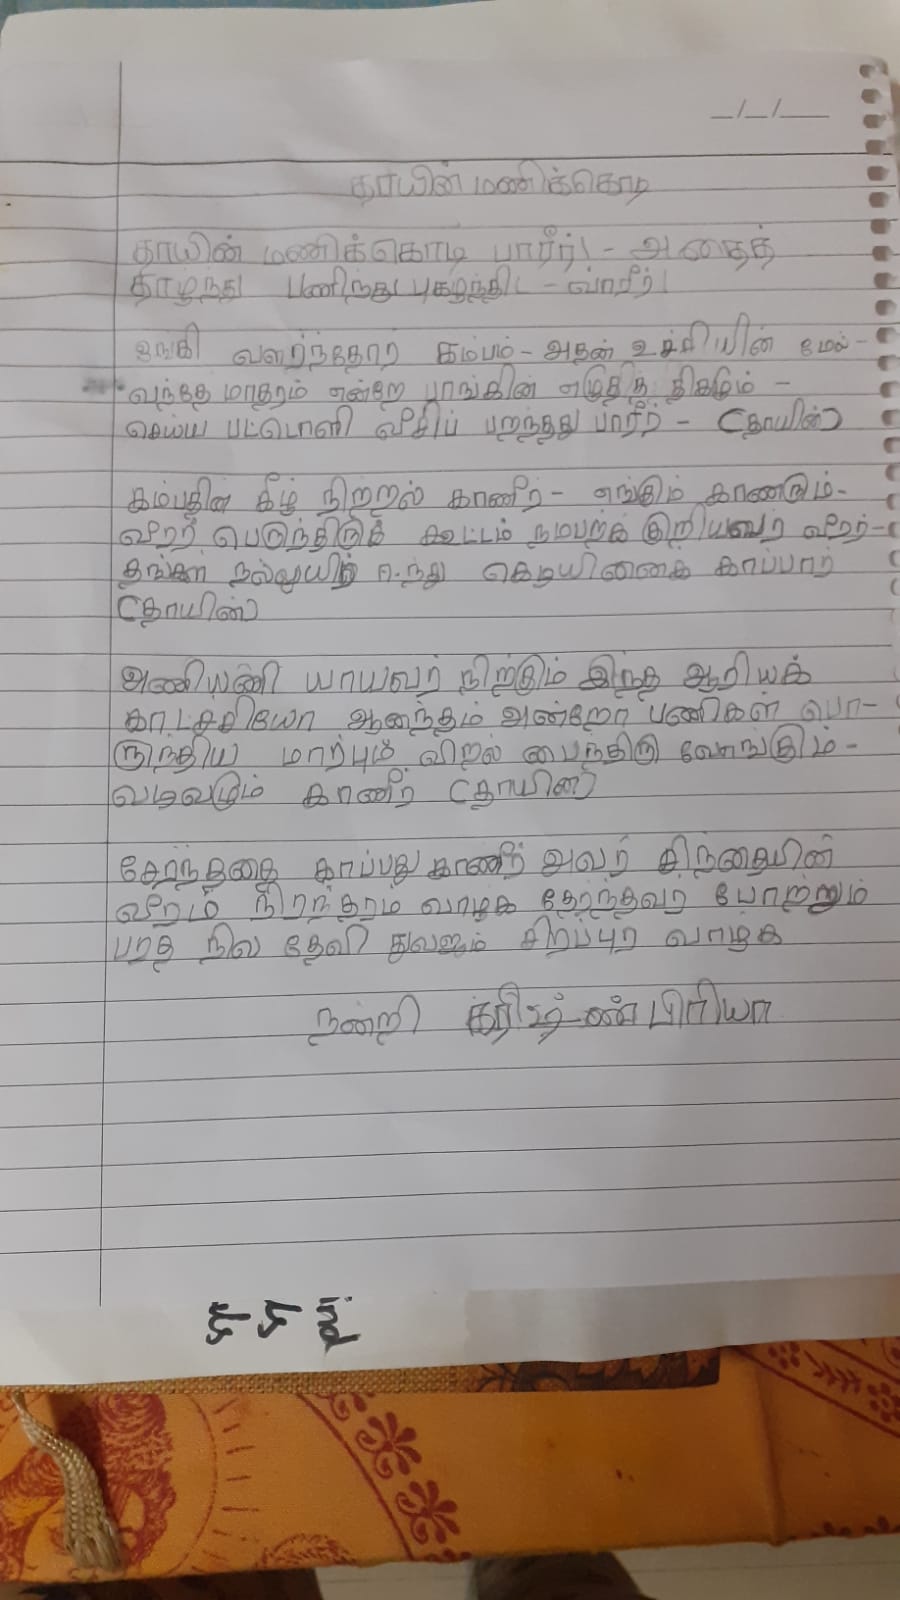 _/_/__
தாயின் மணிக்கொடி
தாயின் மணிக்கொடி பாரீர்! - அதைத்
தாழ்ந்து பணிந்து புகழ்ந்திட - வாரீர்!
ஓங்கி வளர்ந்தோர் கம்பம் - அதன் உச்சியின் மேல் -
வந்தே மாதரம் என்றே பாங்கின் எழுதித் திகழும் -
செய்ய பட்டொளி வீசிப் பறந்தது பாரீர் - (தாயின்)
கம்பதின் கீழ் நிற்றல் காணீர் - எங்கும் காணரும் -
வீரர் பெருந்திருக் கூட்டம் நம்பற்க குறியவர் வீரர் -
தங்கள் நல்லுயிர் ஈந்து கொடியினைக் காப்பார்
(தாயின்)
அணியணி யாயவர் நிற்கும் இந்த ஆரியக்
காட்சசியோ ஆனந்தம் அன்றோ பணிகள் பொ-
ருந்திய மார்பும் விறல் பைந்திரு வோங்கும் -
வடிவமும் காணீர் (தாயின்)
சேர்ந்ததை காப்பது காணீர் அவர் சிந்தையின்
வீரம் நிரந்தரம் வாழக தேர்ந்தவர் போற்றும்
பரத நில தேவி துவஜம் சிறப்புற வாழக
நன்றி பிரியா